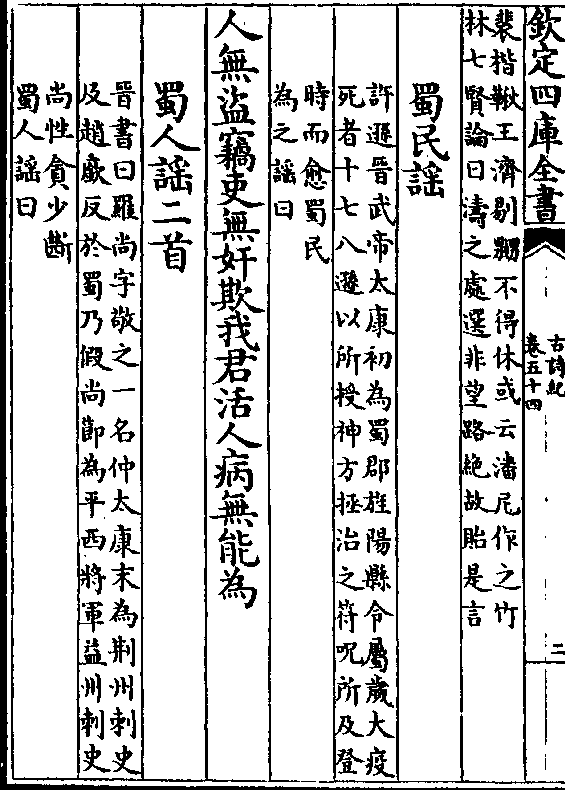 欽定四庫全書
古詩紀
卷五十四
二
裴楷鞦王濟剔嬲不得休或云潘尼作之竹
林七賢論曰濤之處選非望路絶故貽是言
蜀民謡
許遜晉武帝太康初為蜀郡旌陽縣令屬歲大疫
死者十七八遜以所授神方拯治之符呪所及登
時而愈蜀民
為之謡曰
人無盜竊吏無奸欺我君活人病無能為
蜀人謡二首
晉書曰羅尚字敬之一名仲太康末為荆州刺史
及趙廞反於蜀乃假尚節為平西將軍益州刺史
尚性貪少斷
蜀人謡曰